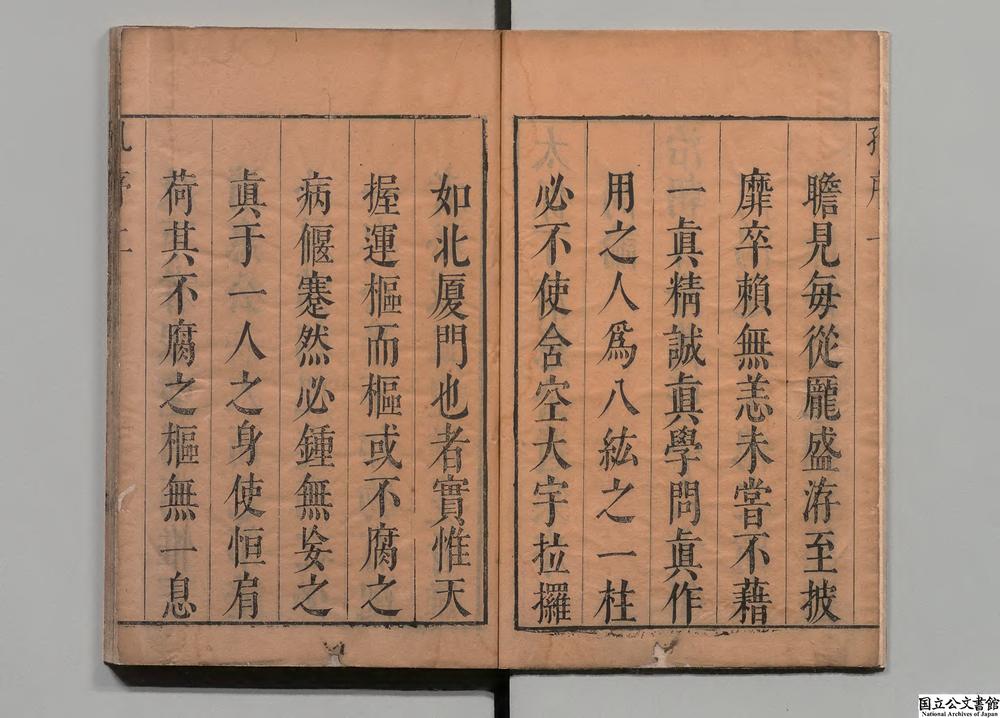 瞻見每從龎盛洊至披
靡卒賴無恙未嘗不藉
一眞精誠眞學問眞作
用之人爲八紘之一柱
必不使舎空大宇拉攞
如北厦門也者實惟天
握運樞而樞或不腐之
病偃蹇然必鍾無妄之
眞于一人之身使恒肩
荷其不腐之樞無一息
国立公文書館
National Archives of Japan